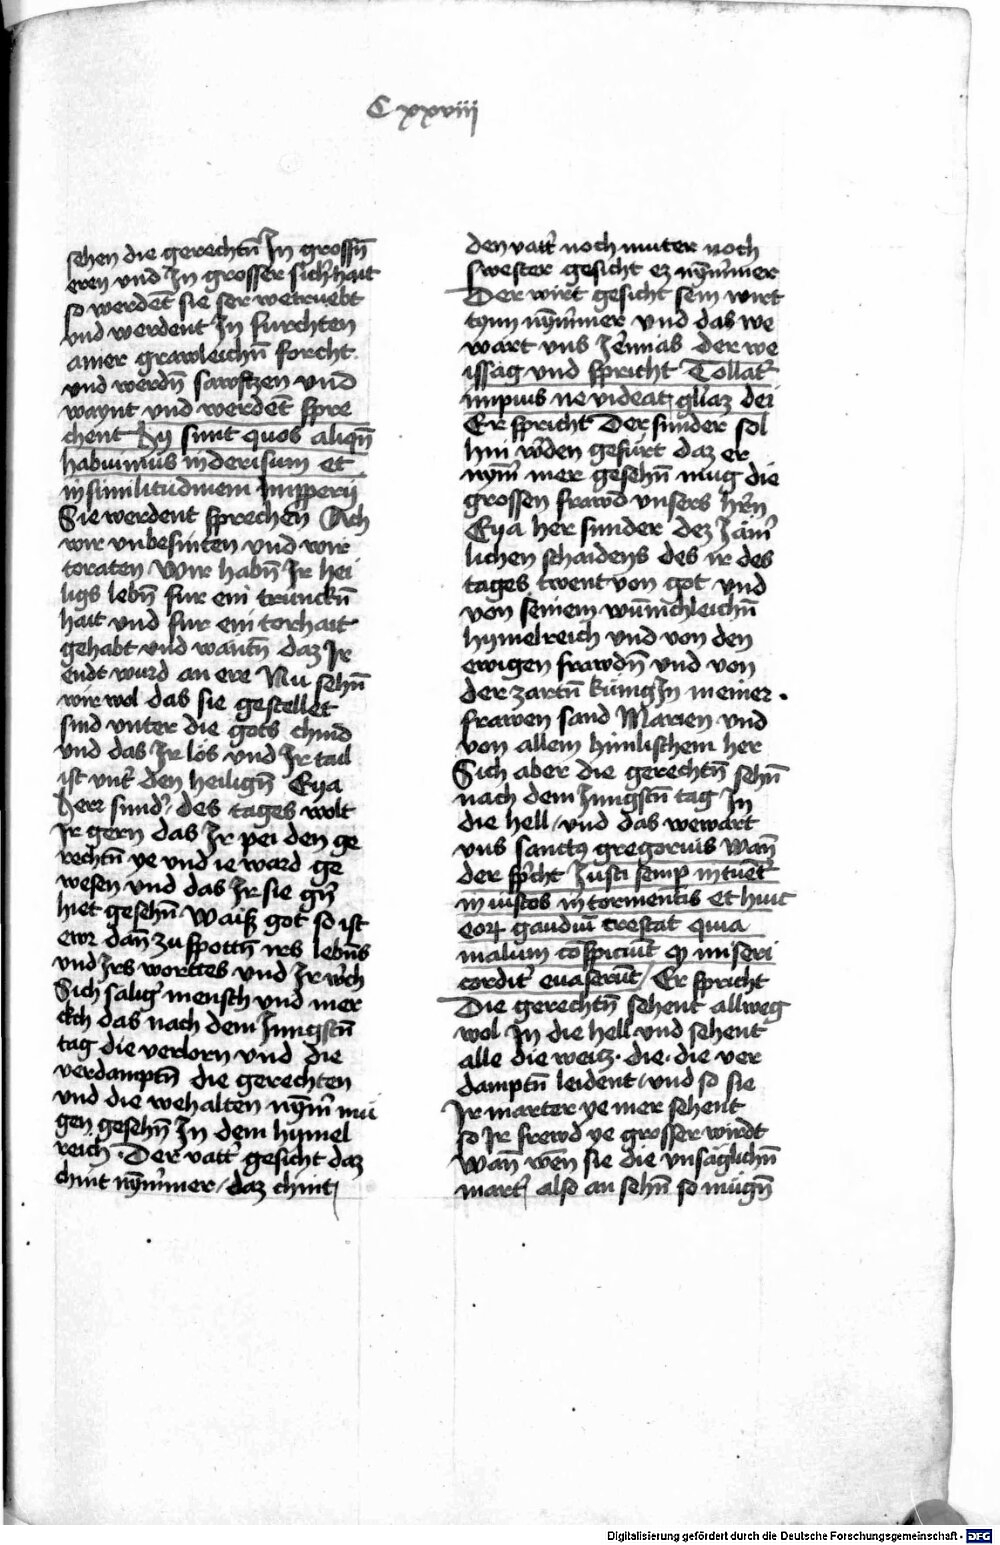 C xxviii
sehen die gerechtn̄ In grossn̄
eren vnd In grosser sich̾hait
so werdēt sie ser wetruebt
vnd werdent In furchten
ainer grawleichn̄ forcht
vnd werdn̄ sawftzen vnd
waynt vnd werdēt spre
chent Hij sunt quos aliqn̄
habuimus inderisum et
in similitudinem impperij
Sie werdent sprechen Ach
wir vnbesinten vnd wir
toraten Wir habn̄ Ir hei
ligs lebn̄ fur ein trunckn̄
hait vnd fur ein torhait
gehabt vnd wantn̄ daz Ir
endt wurd an ere Nu sehn̄
wir wol das sie gestellet
sind vnter die gots chind
vnd das Ir lös vnd Ir tail
ist vnt̾ den heilign̄ Eya
herr sund̾ des tages wolt
Ir gern das Ir pei den ge
rechtn̄ ye vnd ie ward ge
wesen vnd das Ir sie gn̄
hiet gesehn̄ Waiß got so ist
ewr dan̄ zu spottn̄ irs lebn̄s
vnd Irs worttes vnd Ir w̾ch
Sich salig̾ mensch vnd mer
ckch das nach dem Iungstn̄
tag die verlorn vnd die
verdamptn̄ die gerechten
vnd die wehalten nȳm̾ mü
gen gesehn̄ In dem hymel
reich Der vatt̾ gesicht daz
chint nȳm̾mer / daz chint
den vatt̾ noch muter noch
swester gesicht ez nȳm̾mer
Der wirt gesicht sein wirt
tynn nȳm̾mer vnd das we
wart vns Ieremias der we
issag vnd spricht Tollat̾
impius ne videat gl̾iaz dei
Er spricht Der sunder sol
hin w̾den gefürt daz er
nȳm̾ mer gesehn̄ mug die
grossen frawd vnsers hr̄n
Eya her sunder dez Iäm̾
lichen schaidens des ir des
tages twent von got vnd
von seinem wūnichleichn̄
hymelreich vnd von den
ewigen frawdn̄ vnd von
der zartn̄ künigIn meiner
frawen sand Marien vnd
von allem himlischem her
Sich aber die gerechtn̄ sehn̄
nach dem Iungstn̄ tag In
die hell / vnd das wewart
vns sanctus gregorius Wan̄
der sp̾cht Iusti semp intuēt̾
iniustos in tormentis et huic
eorꝝ gaudiū crescat quia
malum cōspiciūt qꝫ miseri
cordit̾ euaserūt / Er spricht
Die gerechtn̄ sehent allweg
wol In die hell vnd sehent
alle die weitz die die ver
damptn̄ leident / vnd so sie
Ir marter ye mer sehent
so Ir frewd ye grosser wirdt
Wan̄ wēn sie die vnsäglichn̄
mart̾ also an sehn̄ so mügn̄
Digitalisierung gefördert durch die Deutsche Forschungsgemeinschaft - DFG